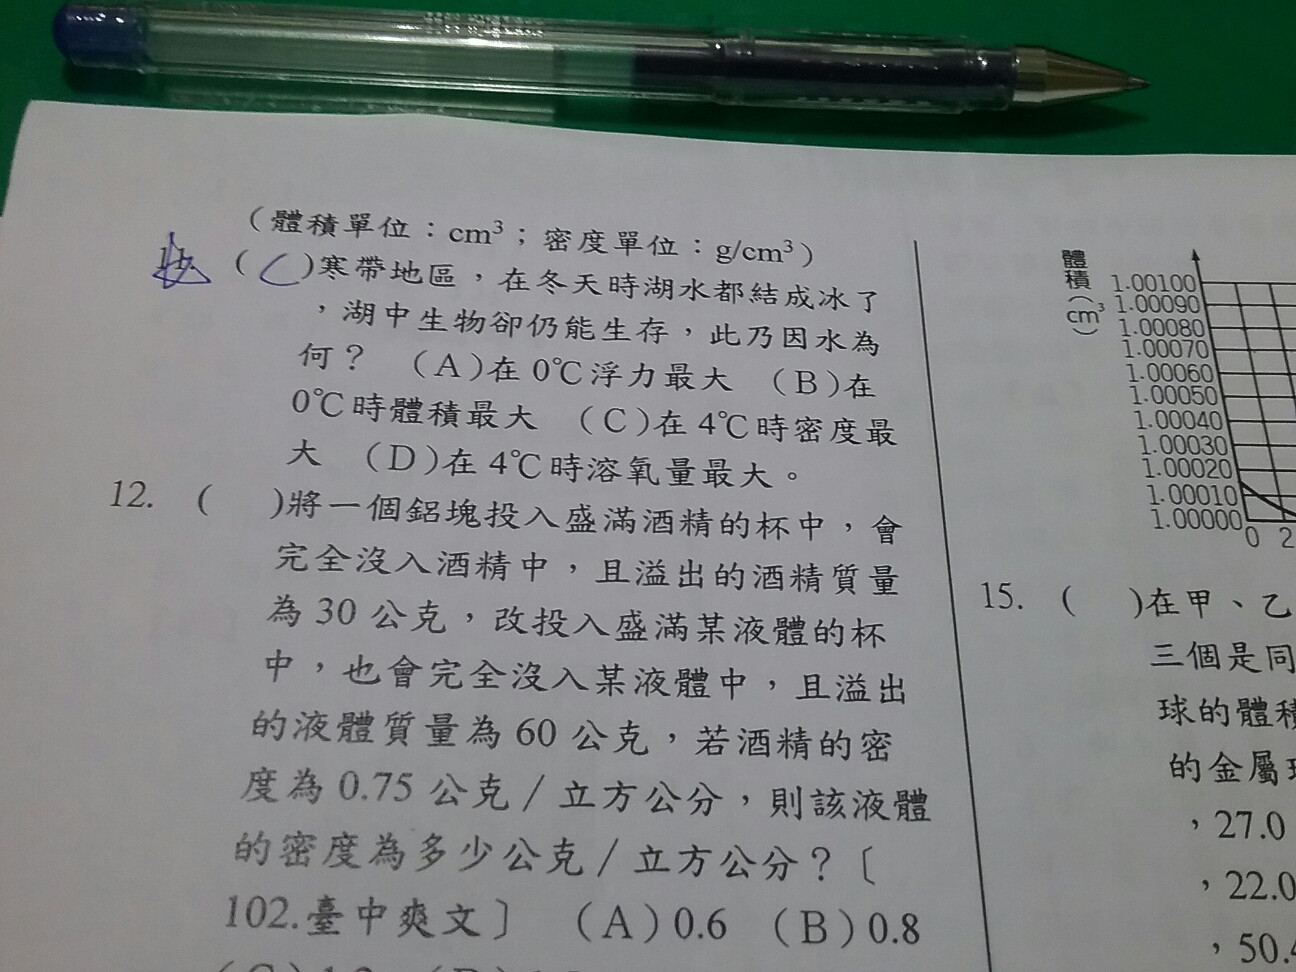 （體積單位：cm³；密度單位：g/cm³）
(C)寒帶地區，在冬天時湖水都結成冰了
，湖中生物卻仍能生存，此乃因水為
何？ （A）在 0℃浮力最大 （B）在
0℃時體積最大 （C）在 4℃時密度最
大 （D）在 4℃時溶氧量最大。
12. ( )將一個鋁塊投入盛滿酒精的杯中，會
完全沒入酒精中，且溢出的酒精質量
為 30 公克，改投入盛滿某液體的杯
中，也會完全沒入某液體中，且溢出
的液體質量為 60 公克，若酒精的密
度為 0.75 公克／立方公分，則該液體
的密度為多少公克／立方公分？〔
102.臺中爽文〕 （A）0.6 （B）0.8
體積（cm³）
1.00100
1.00090
1.00080
1.00070
1.00060
1.00050
1.00040
1.00030
1.00020
1.00010
1.00000
0 2
15. ( )在甲、乙
三個是同
球的體積
的金屬球
，27.0
，22.0
，50.4